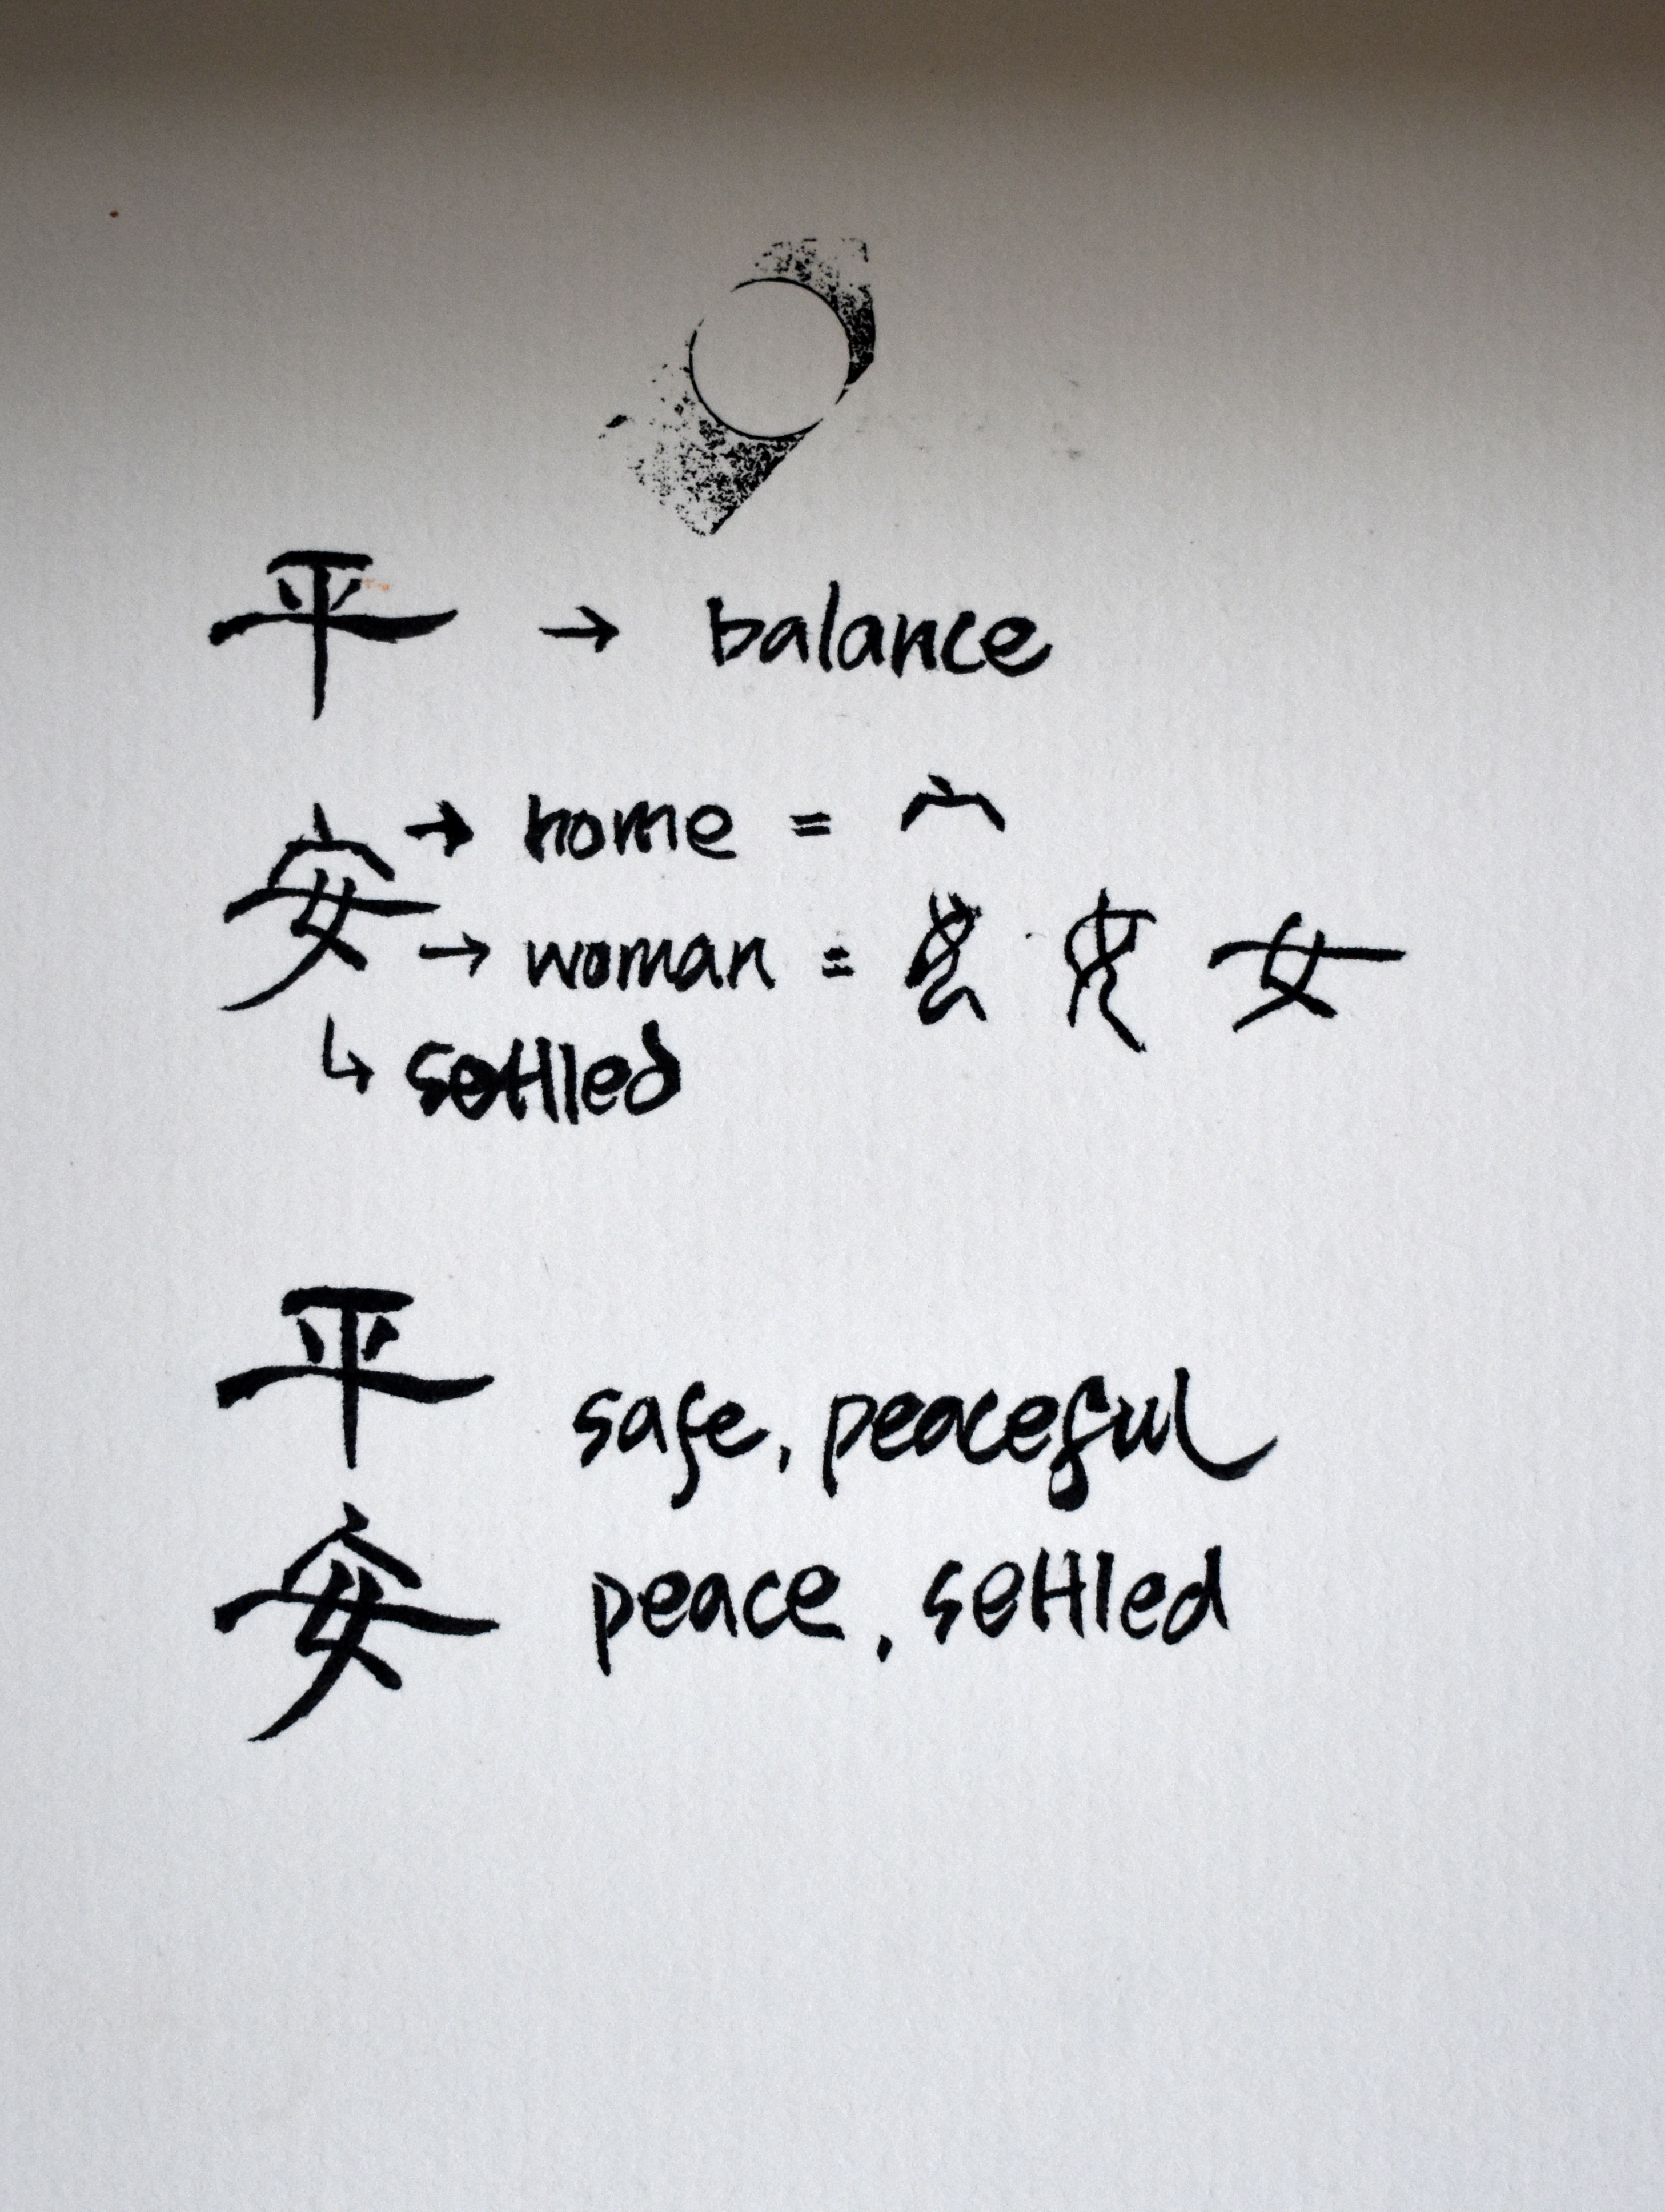 平 → balance
安 → home = 宀
→ woman = 女
↳ settled
平 safe, peaceful
安 peace, settled